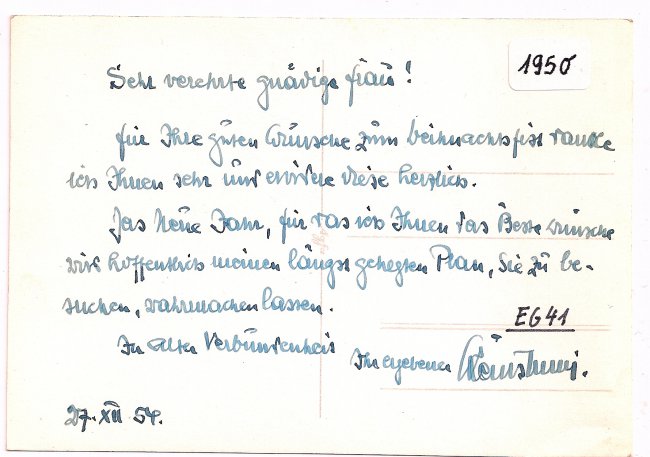 Sehr verehrte gnädige Frau!
1950
für Ihre guten Wünsche zum Weihnachtsfest danke
ich Ihnen sehr und erwidere diese herzlich.
Das Neue Jahr, für das ich Ihnen das Beste wünsche
wird hoffentlich meinen längst gehegten Plan, Sie zu be-
suchen, wahrmachen lassen.
EG41
In alter Verbundenheit
Ihr ergebener
27. XII 54.